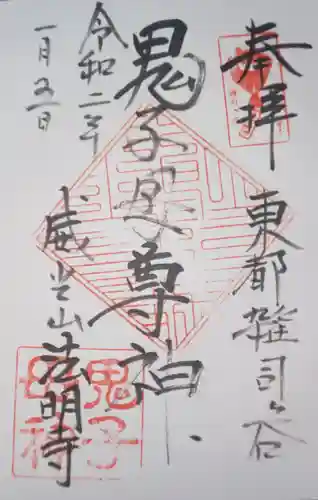 奉拝
東都雑司ヶ谷
鬼子母尊神
威光山法明寺
令和二年
一月五日
鬼子
母神